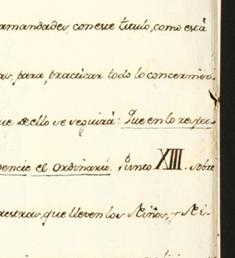 armandades, con este titulo, como está
as, para, practicar todo lo concerni
ue de ello se seguirá: Que en lo respec
dencie el Ordinario. Punto XIII. sobre
estras, que lleven los Niños, y Ni